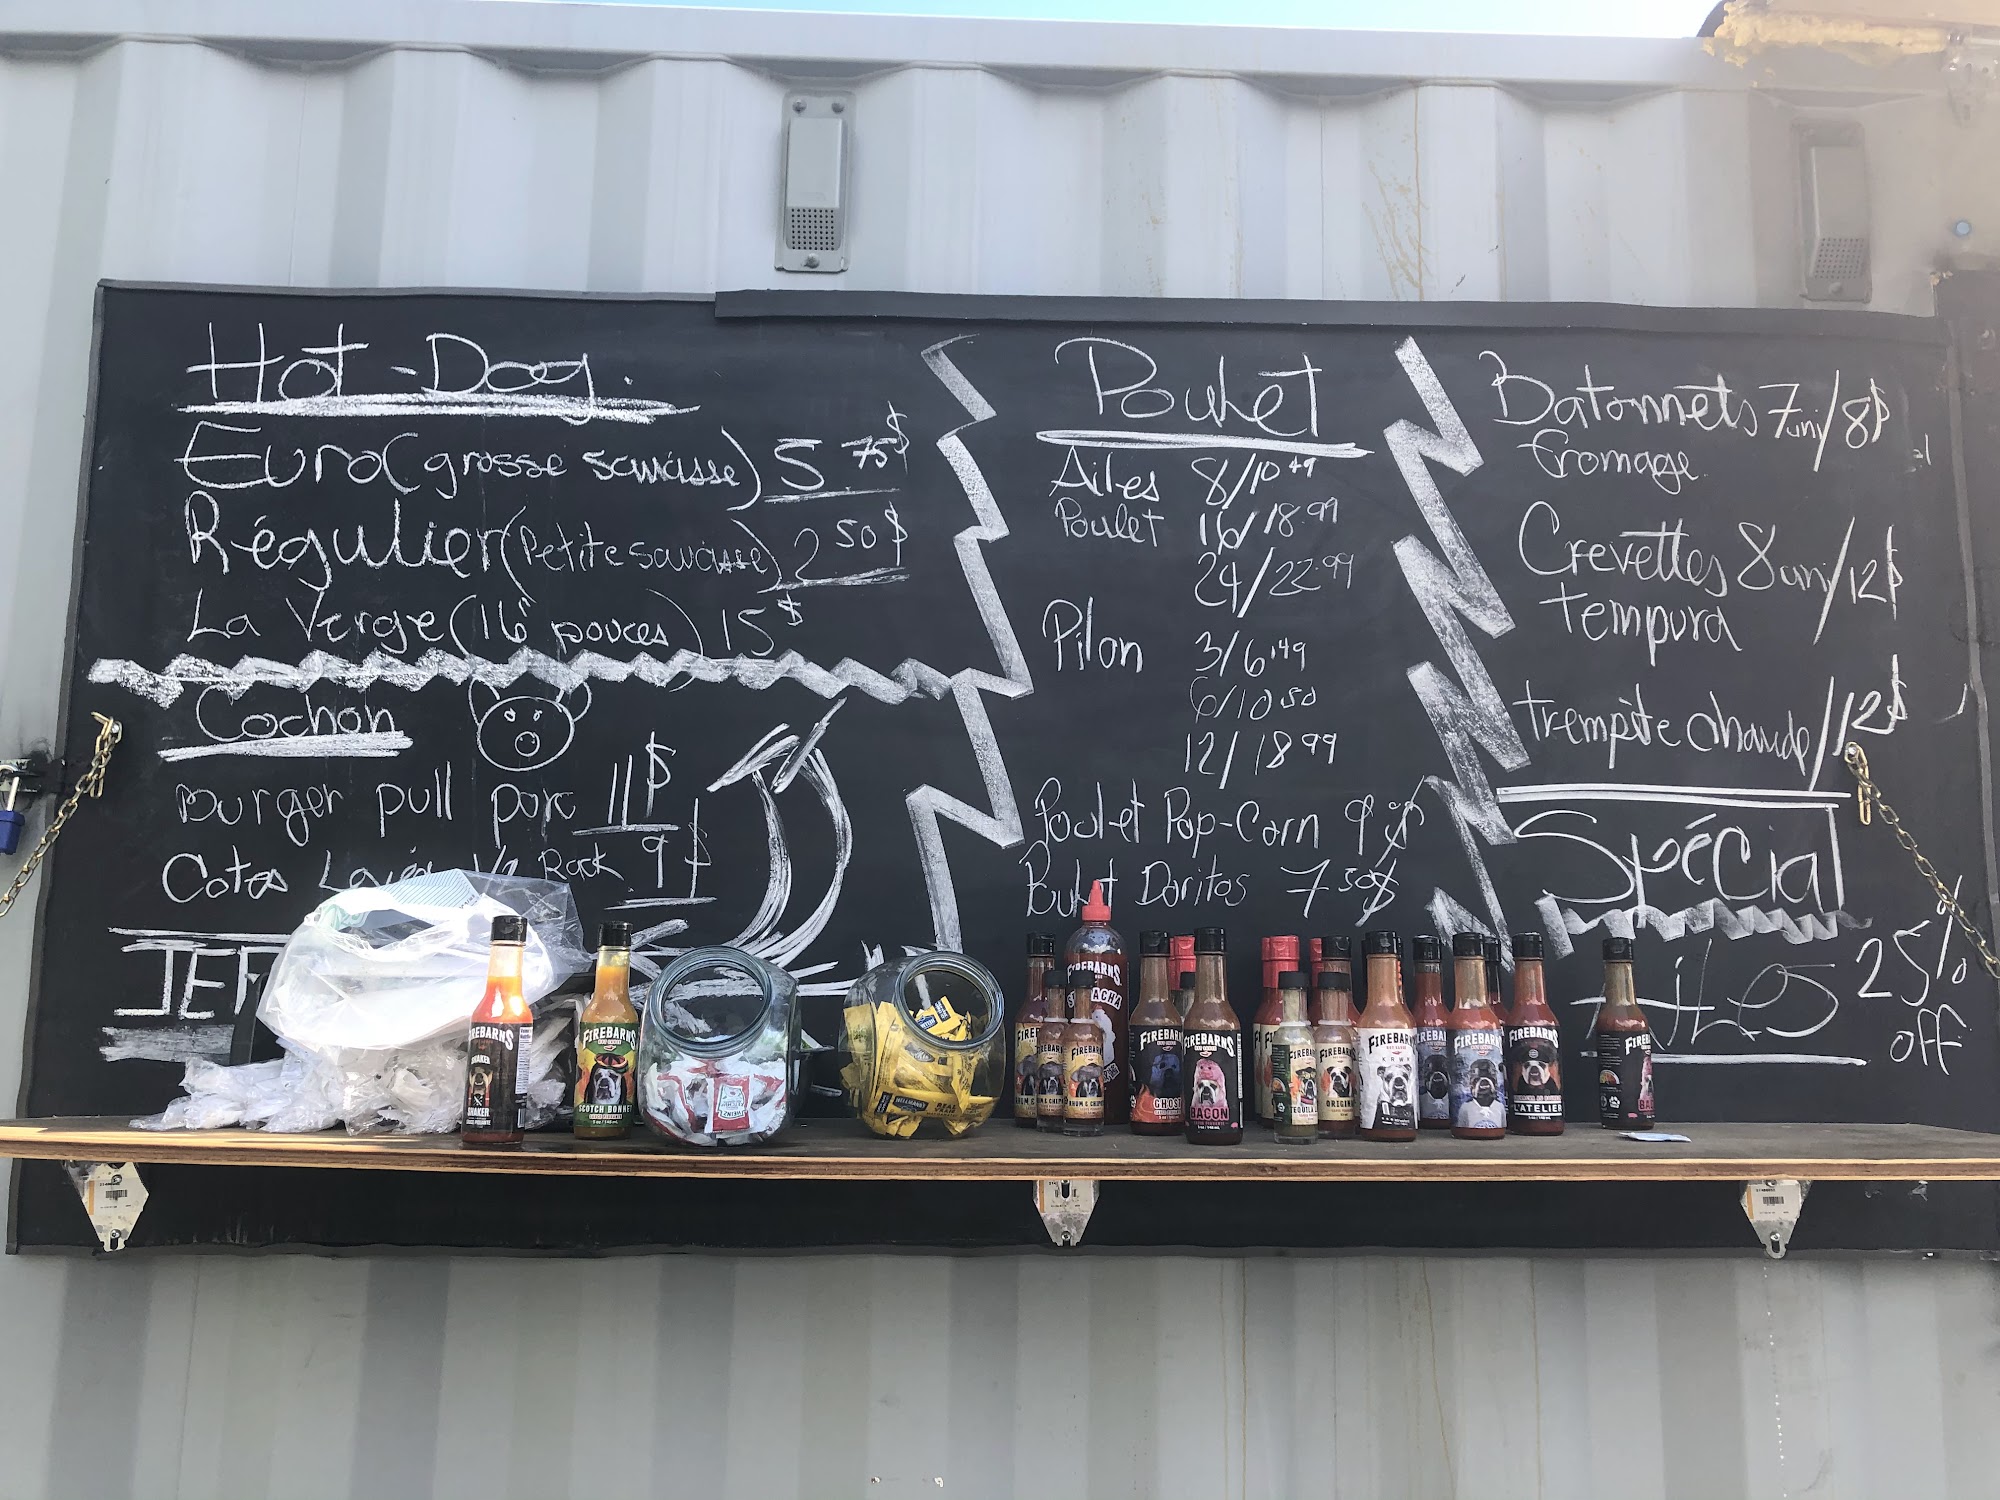 Hot-Dog.
Euro (grosse saucisse) 5.75$
Régulier (Petite saucisse) 2 50$
La Verge (16" pouces) 15$
Cochon
Burger pull porc 11$
Cotes Rack 9$
Poulet
Ailes 8/10 49
Poulet 16/18.99
24/22.99
Pilon 3/6.49
6/10 50
12/18 99
Poulet Pop-Corn 9
Poulet Doritos 7 50$
Batonnets 7uni/8$
fromage
Crevettes 8uni/12$
tempura
trempète chaude/12$
Spécial
AiLES 25%
off
FIREBARNS
SHAKER
FIREBARNS
SCOTCH BONNET
HEINZ
FIREBARNS
FIREBARNS
GHOST
FIREBARNS
BACON
FIREBARNS
TEQUILA
FIREBARNS
ORIGINAL
FIREBARNS
FIREBARNS
FIREBARNS
FIREBARNS
L'ATELIER